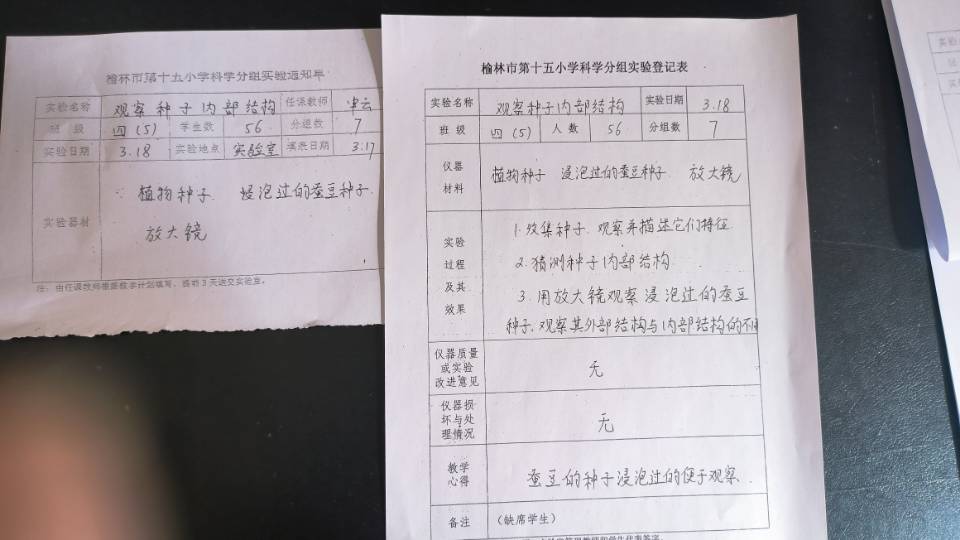 榆林市第十五小学科学分组实验通知单
实验名称 观察种子内部结构 任课教师
班 级 四(5) 学生数 56 分组数 7
实验日期 3.18 实验地点 实验室 填表日期 3.17
实验器材
植物种子 浸泡过的蚕豆种子.
放大镜
注：由任课教师根据教学计划填写，提前3天送交实验室。
榆林市第十五小学科学分组实验登记表
实验名称 观察种子内部结构 实验日期 3.18
班 级 四(5) 人 数 56 分组数 7
仪器
材料
植物种子 浸泡过的蚕豆种子. 放大镜
实验
过程
及其
效果
1.收集种子.观察并描述它们特征.
2.猜测种子内部结构
3.用放大镜观察浸泡过的蚕豆
种子.观察其外部结构与内部结构的不
仪器质量
或实验
改进意见
无
仪器损
坏与处
理情况
无
教学
心得
蚕豆的种子浸泡过的便于观察.
备注 （缺席学生）